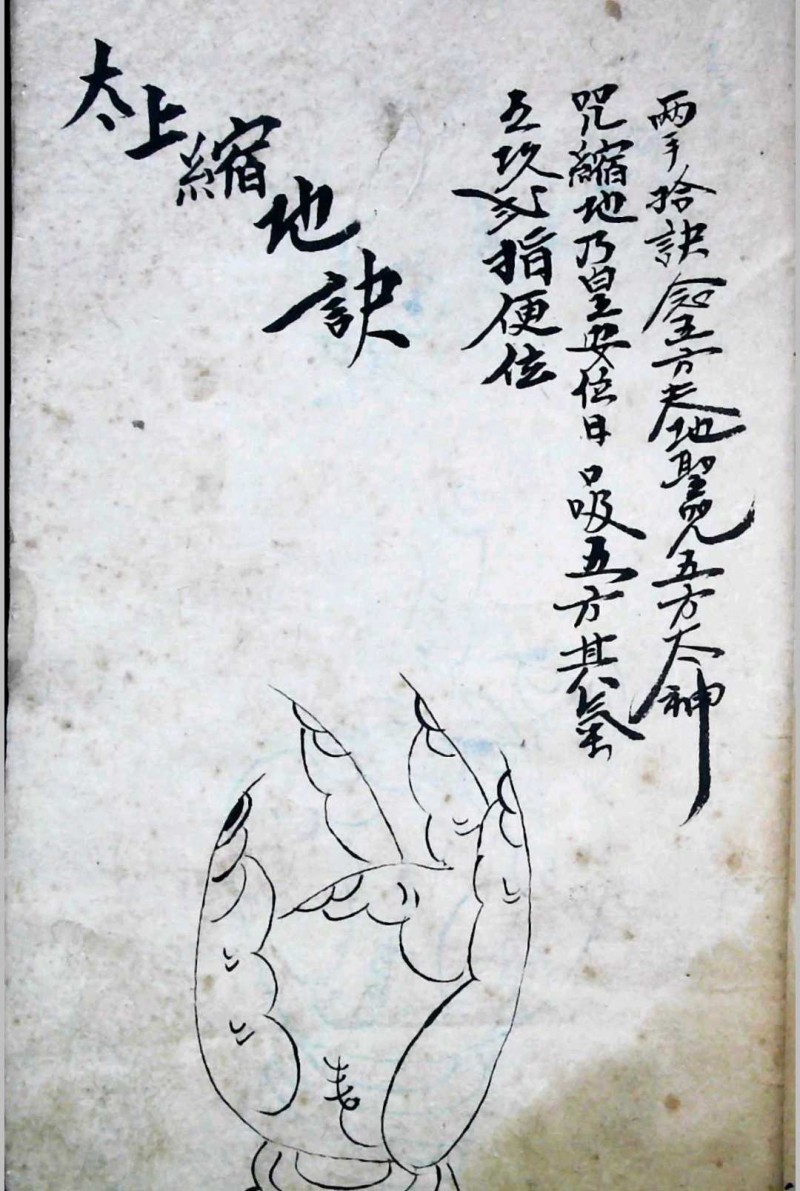 两手拾訣念五方天地聖咒五方大神
咒縮地乃皇安位日口吸五方其氣
五 指便位
太上縮地訣